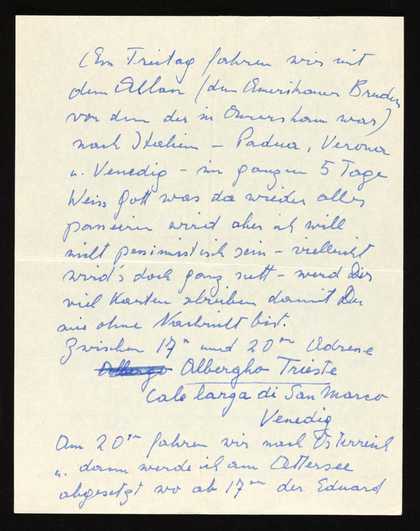 Am Freitag fahren wir mit
dem Allan (dem Amerikaner Bruder
von dem der in Amersham war)
nach Italien – Padua, Verona
u. Venedig – im ganzen 5 Tage
Weiss Gott was da wieder alles
passieren wird aber ich will
nicht pessimistisch sein – vielleicht
wird's doch ganz nett – werd Dir
viel Karten schreiben damit Du
nie ohne Nachricht bist.
Zwischen 17n und 20en Adresse
Albergo Albergho Trieste
Cale larga di San Marco
Venedig
Am 20en fahren wir nach Österreich
u. dann werde ich am Attersee
abgesetzt wo ab 17en der Eduard